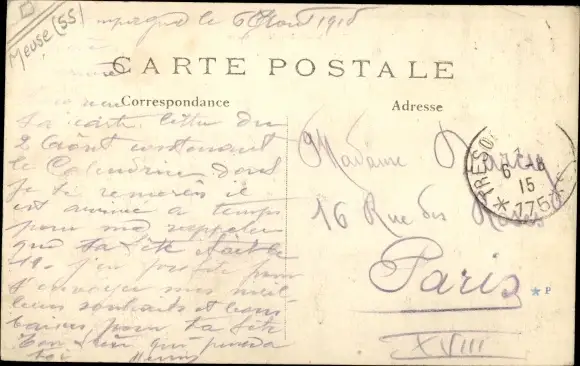 Meuse (55)
le 6 Août 1915
CARTE POSTALE
Correspondance
Adresse
ta carte lettre du
2 Août contenant
le Calendrier dont
je te remercie il
est arrivé à temps
pour me rappeler
que ta fête était le
19. j'en profite pour
t'envoyer mes meil-
leurs souhaits et bons
baisers pour ta fête
Ton qui pense à
toi
Madame
16 Rue des
Paris
XVIII
TRESOR
6
15
* 175
* P